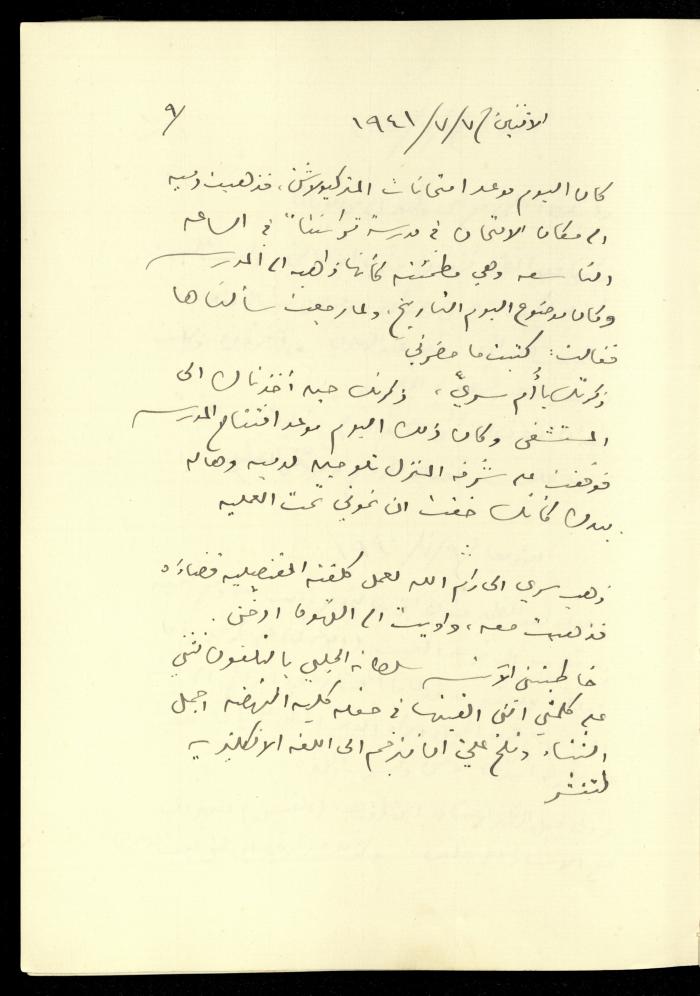 الاثنين ٧/٧/١٩٤١
٩/
كان اليوم موعد امتحانات المتركيولايشن، فذهبت دميه
الى مكان الامتحان في مدرسة تراسنطا في الساعه
التاسعه وهي مطمئنه كأنها ذاهبه الى المدرسه
وكان موضوع اليوم التاريخ، ولما رجعت سألناها
فقالت: كتبت ما حضرني
ذكرتك يا أم سريّ، ذكرتك حين أخذناك الى
المستشفى وكان ذلك اليوم موعد افتتاح المدرسه
فوقفت على شرفه المنزل تلوحين لدميه وهاله
بيدك كأنك خفت ان تموتي تحت العمليه
ذهب سري الى رام الله لعمل كلفته القنصليه قضاءه
فذهبت معه، واويت الى القهوة ادخن.
خاطبتني الآنسه سلطانه الحلبي بالتلفون تثني
على كلمتي التي القيتها في حفله كليه النهضه اجمل
الثناء وتلح علي ان تترجم الى اللغه الانكليزيه
لتنشر